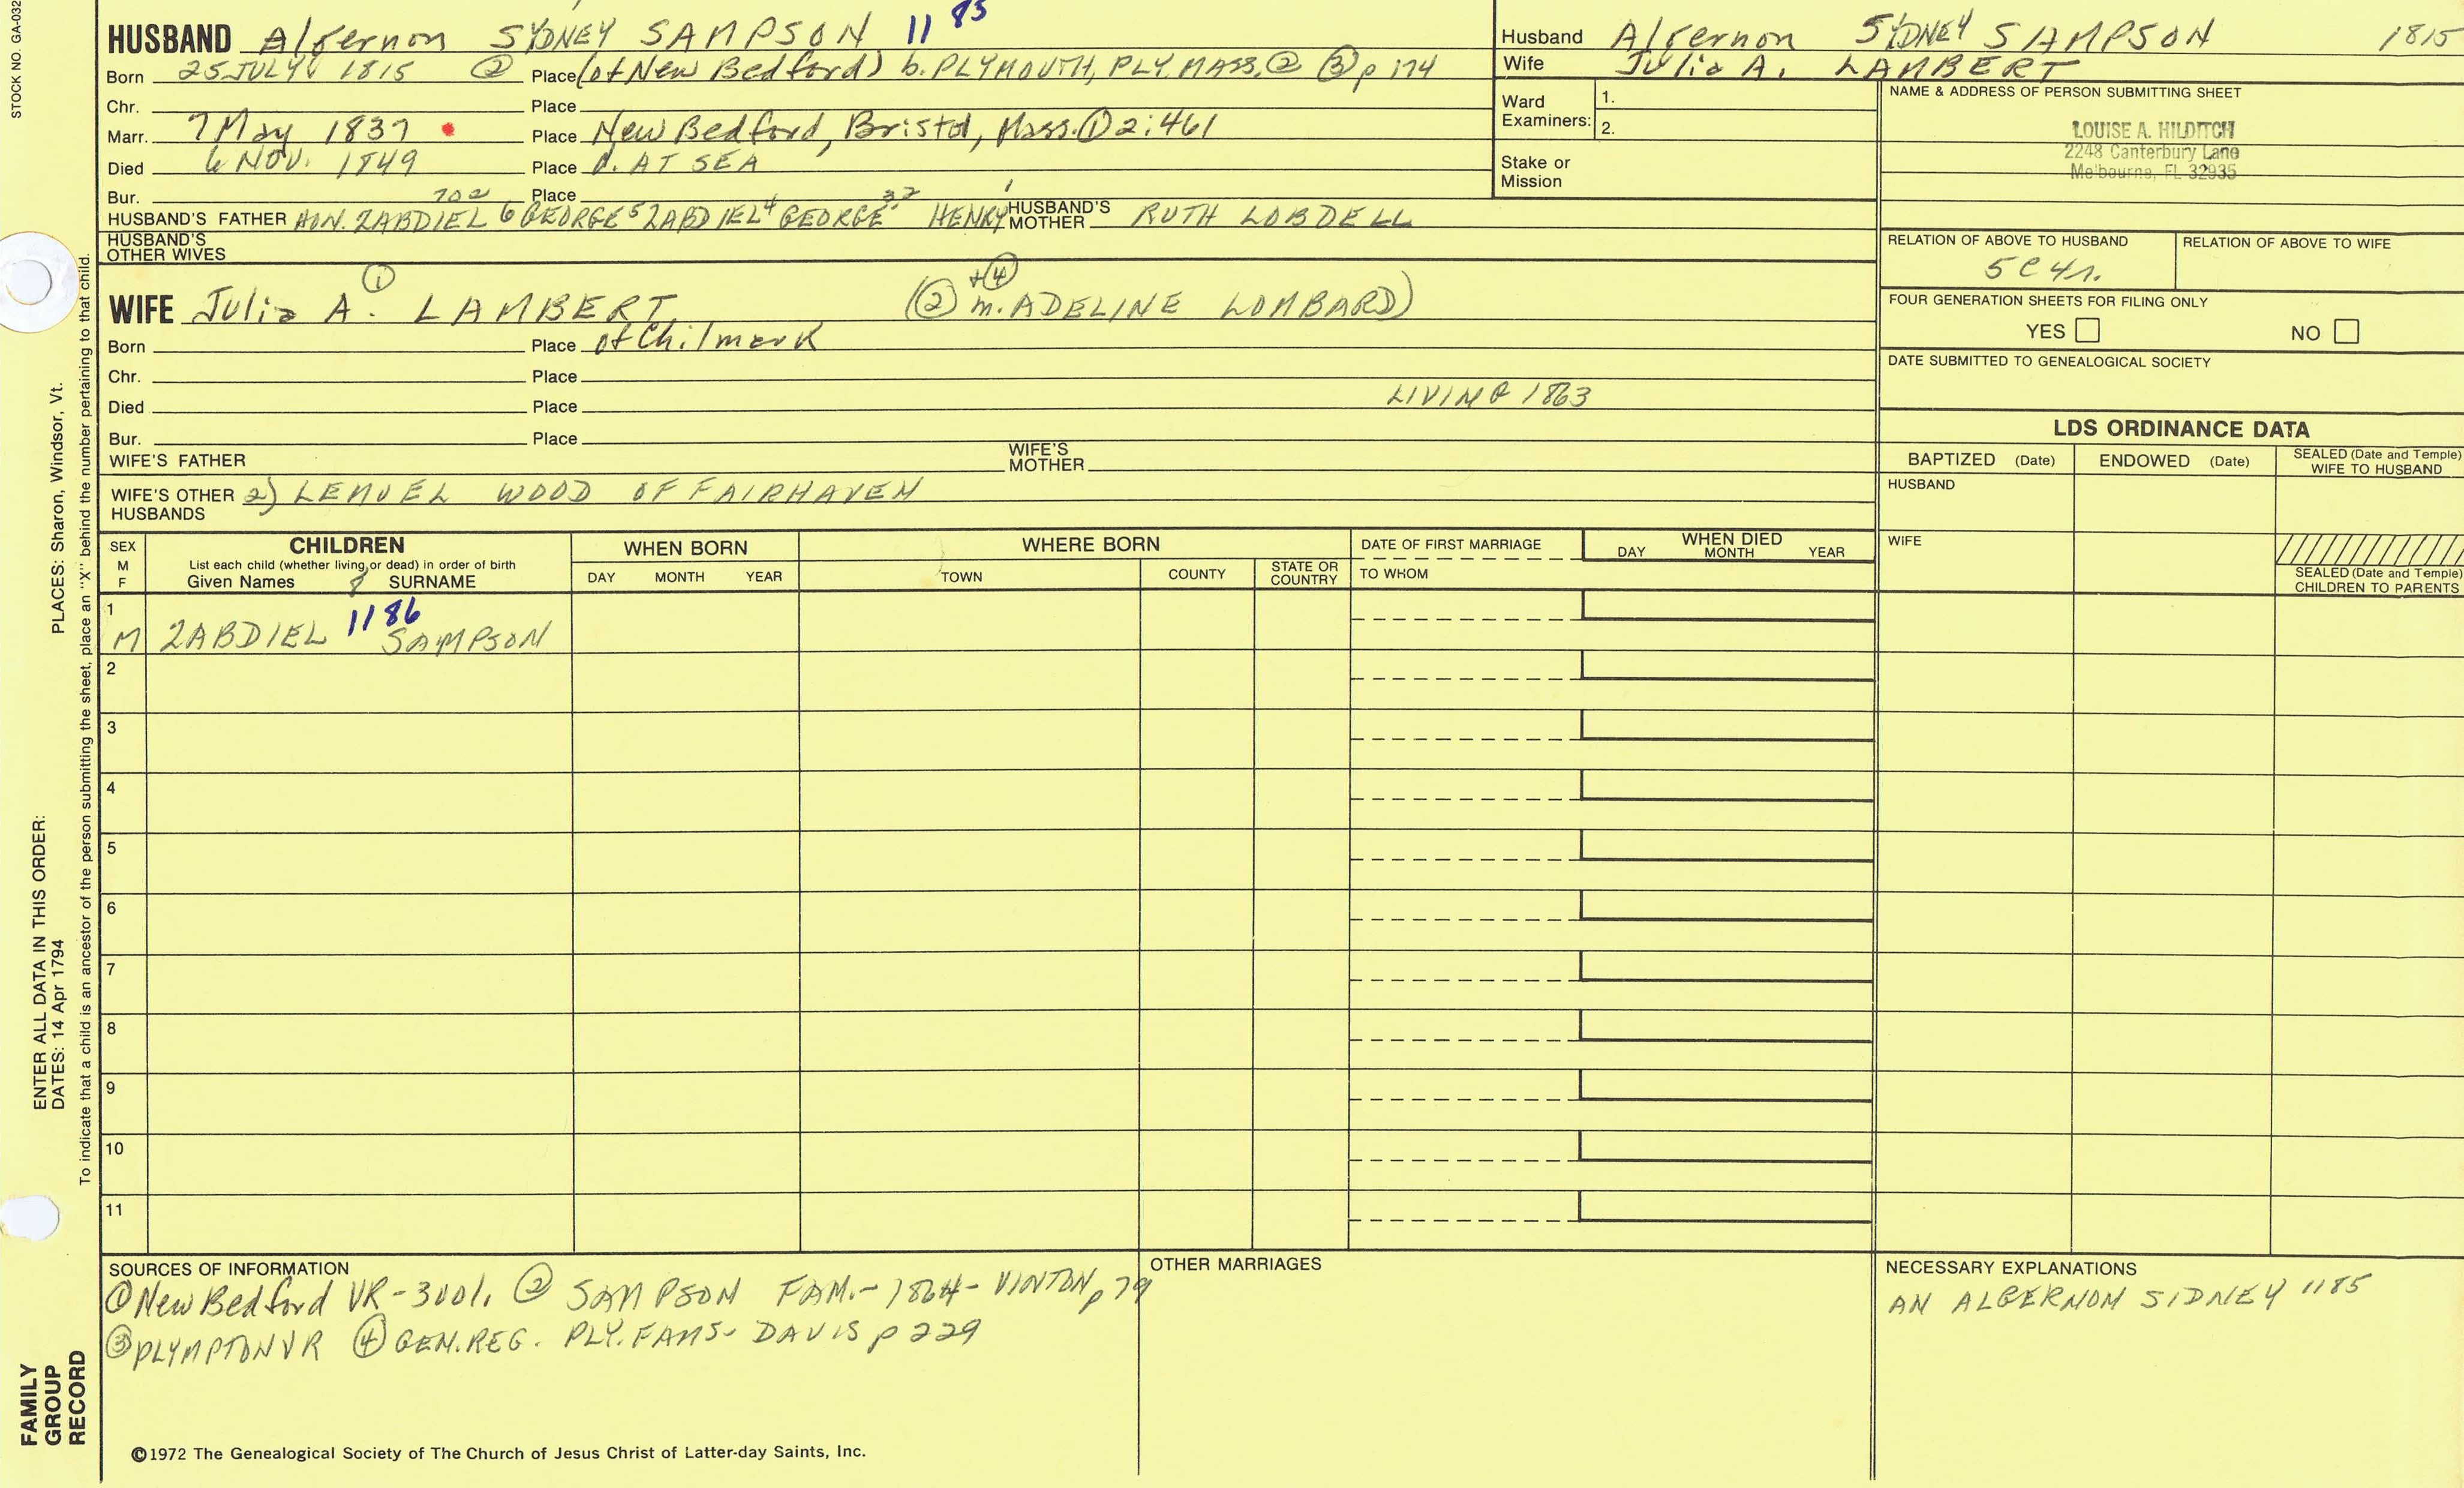 STOCK NO. GA-032
HUSBAND Algernon SYDNEY SAMPSON 1185
Born 25 JULY 1815 ② Place (of New Bedford) b. PLYMOUTH, PLY. MASS. ② ③ p 174
Chr. Place
Marr. 7 May 1837 Place New Bedford, Bristol, Mass. ① 2:461
Died 6 NOV. 1849 Place d. AT SEA
Bur. Place
702 32
HUSBAND'S FATHER HON. ZABDIEL 6 GEORGE 5 ZABDIEL 4 GEORGE HENRY HUSBAND'S MOTHER RUTH LOBDELL
HUSBAND'S OTHER WIVES
WIFE Julia A. ① LAMBERT (② +④ m. ADELINE LOMBARD)
Born Place of Chilmark
Chr. Place
Died Place LIVING 1863
Bur. Place
WIFE'S FATHER WIFE'S MOTHER
WIFE'S OTHER HUSBANDS 2) LEMUEL WOOD OF FAIRHAVEN
Husband Algernon SYDNEY SAMPSON 1815
Wife Julia A. LAMBERT
Ward Examiners: 1.
2.
Stake or Mission
NAME & ADDRESS OF PERSON SUBMITTING SHEET
LOUISE A. HILDITCH
2248 Canterbury Lane
Melbourne, FL 32935
RELATION OF ABOVE TO HUSBAND RELATION OF ABOVE TO WIFE
5C 4r.
FOUR GENERATION SHEETS FOR FILING ONLY
YES NO
DATE SUBMITTED TO GENEALOGICAL SOCIETY
LDS ORDINANCE DATA
BAPTIZED (Date) ENDOWED (Date) SEALED (Date and Temple) WIFE TO HUSBAND
HUSBAND
WIFE
SEALED (Date and Temple) CHILDREN TO PARENTS
SEX M F
CHILDREN
List each child (whether living or dead) in order of birth
Given Names 8 SURNAME
WHEN BORN
DAY MONTH YEAR
WHERE BORN
TOWN COUNTY STATE OR COUNTRY
DATE OF FIRST MARRIAGE
TO WHOM
WHEN DIED
DAY MONTH YEAR
1 M ZABDIEL 1186 SAMPSON
2
3
4
5
6
7
8
9
10
11
SOURCES OF INFORMATION
① New Bedford VR - 3vol. ② SAMPSON FAM. - 1864 - VINTON p 79
③ PLYMPTON VR ④ GEN. REG. PLY. FAMS - DAVIS p 229
OTHER MARRIAGES
NECESSARY EXPLANATIONS
AN ALGERNON SIDNEY 1185
©1972 The Genealogical Society of The Church of Jesus Christ of Latter-day Saints, Inc.
FAMILY GROUP RECORD
ENTER ALL DATA IN THIS ORDER:
DATES: 14 Apr 1794
PLACES: Sharon, Windsor, Vt.
To indicate that a child is an ancestor of the person submitting the sheet, place an "X" behind the number pertaining to that child.